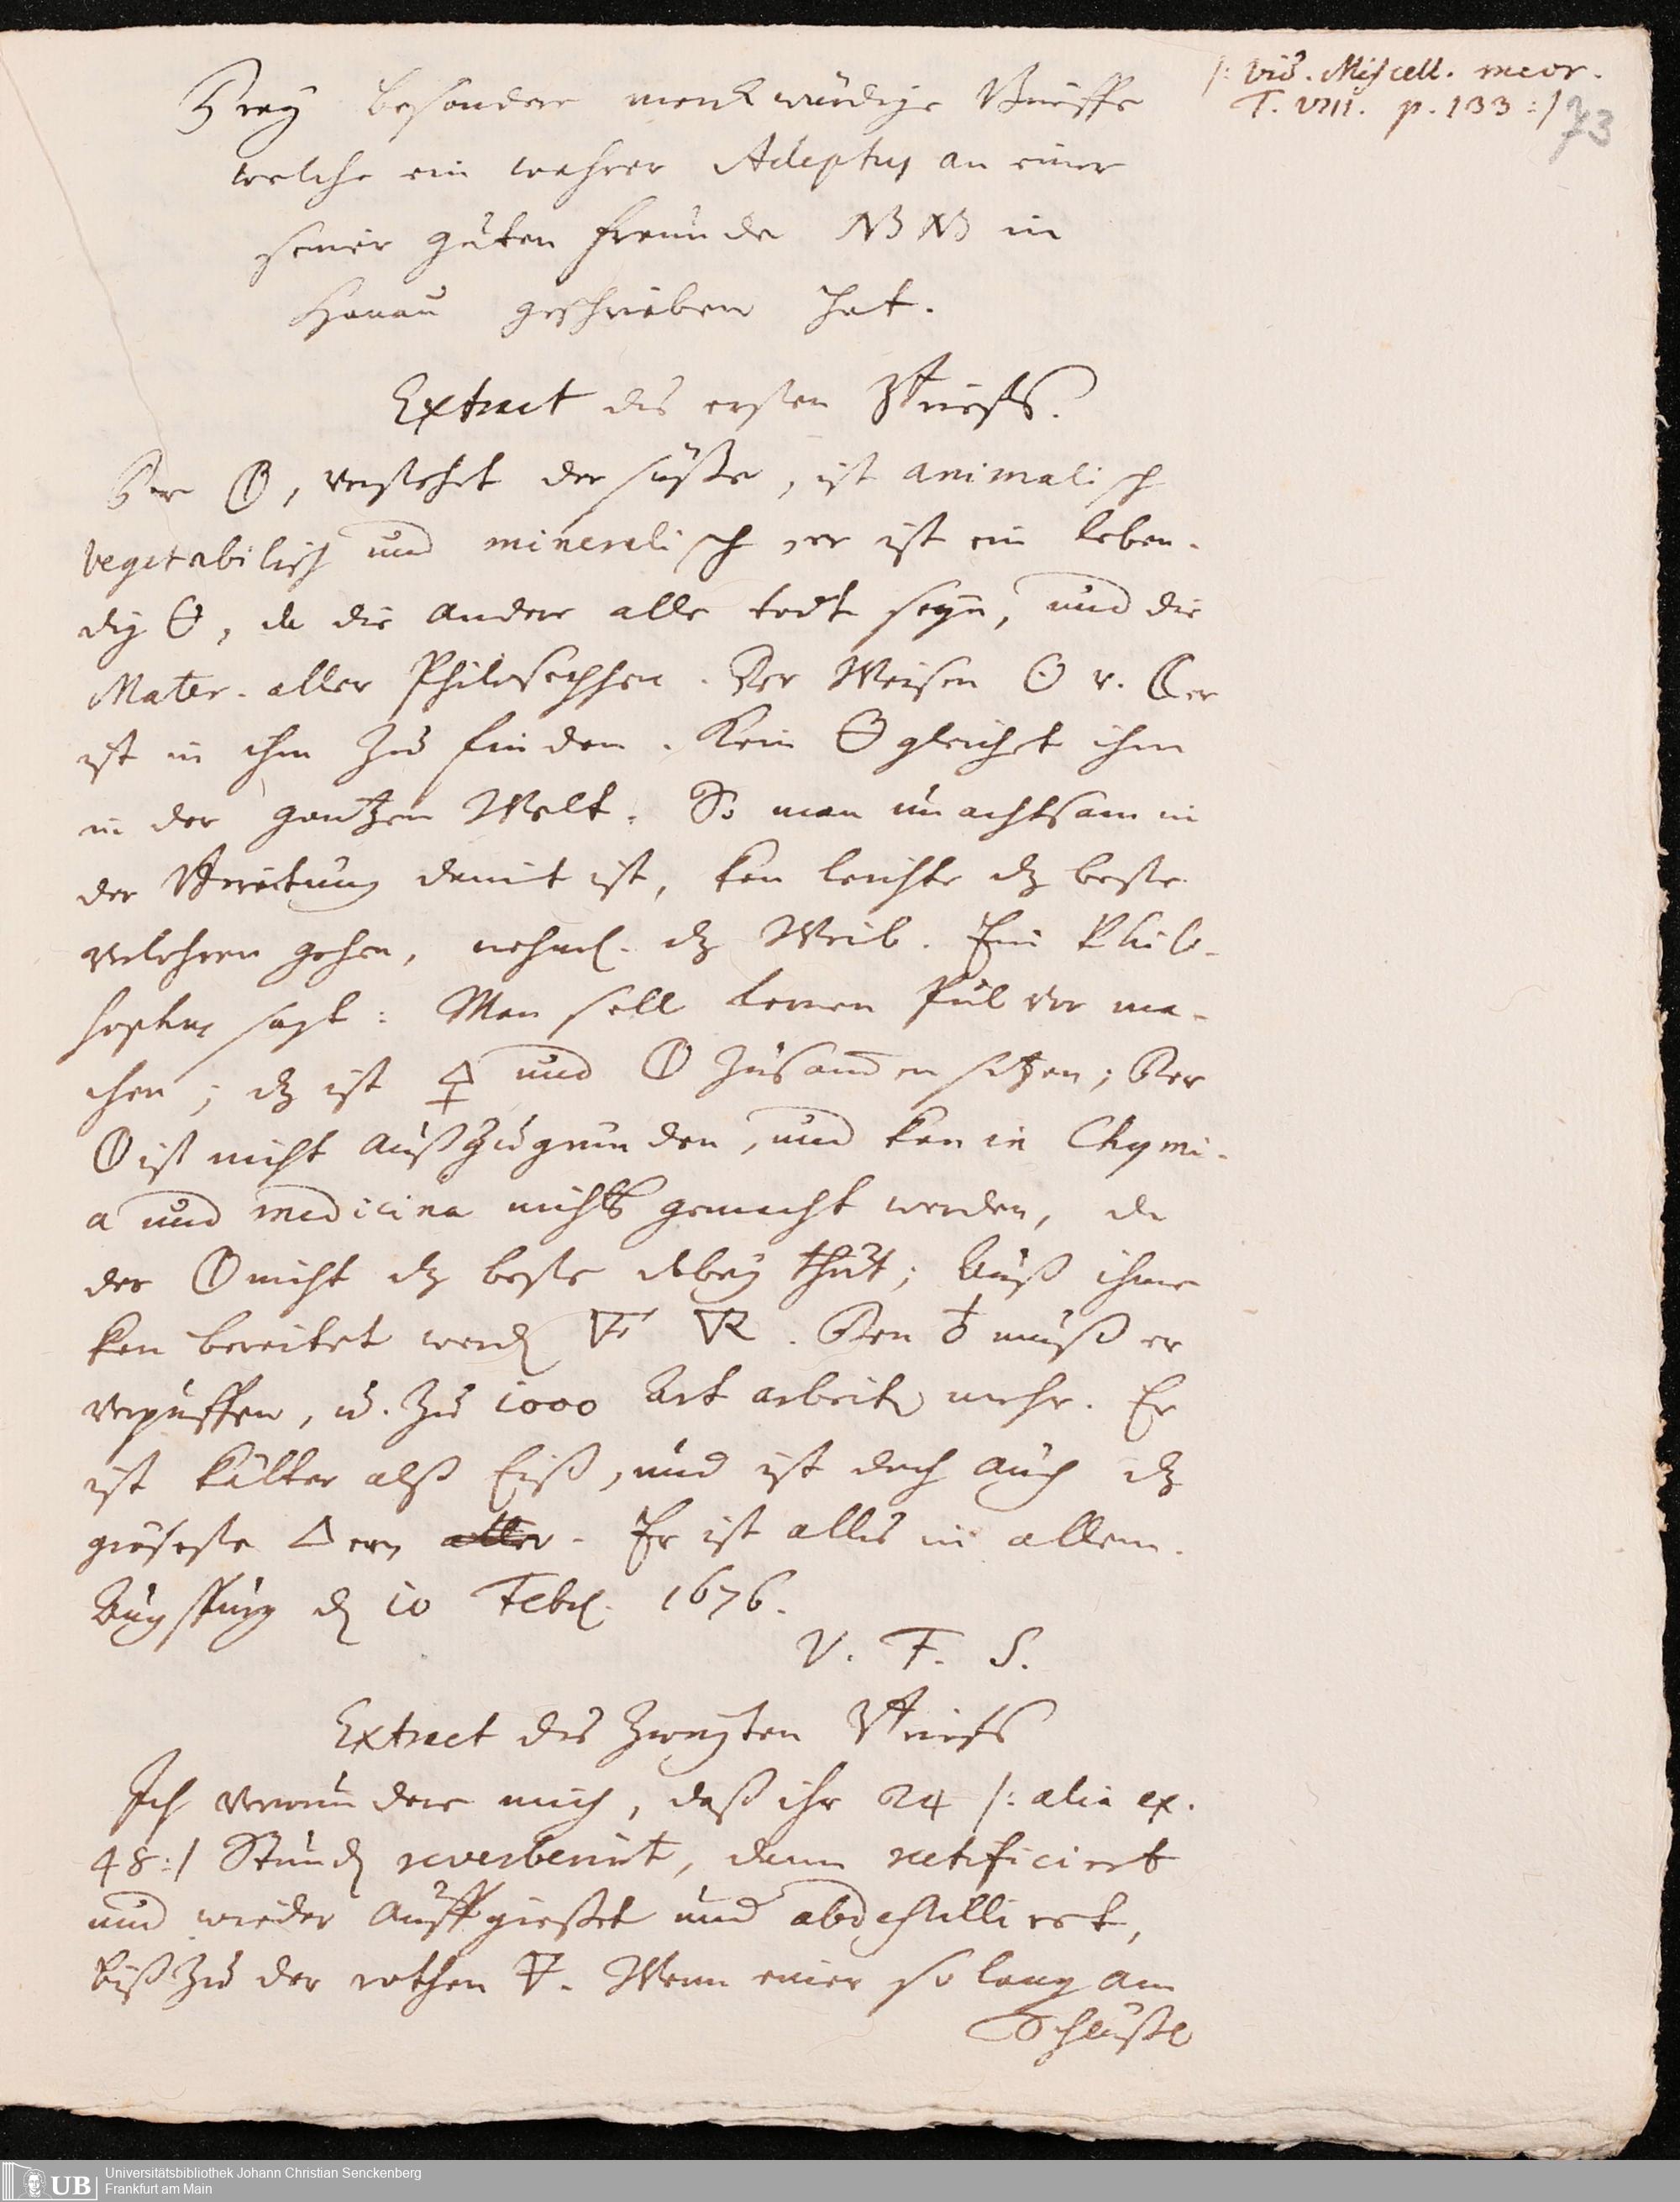 /: vid. Miscell. meor.
T. VIII. p. 133 :/
73
Drey besondere merckwürdige Brieffe
welche ein wahrer Adeptus an einer
seiner guten freunde NB NB in
Hanau geschrieben hat.
Extract des ersten Brieffs.
Der 🜕, verstehet der süsse, ist animalisch
vegetabilisch und mineralisch, er ist ein leben-
dig 🜔, da die andere alle todt seyn, und die
Mater. aller Philosophen. Der Weisen ☉ v. ☾er
ist in ihm zu finden. Kein 🜔 gleichet ihm
in der gantzen Welt. So man unachtsam in
der Bereitung damit ist, kan leichte dz beste
verlohren gehen, nehml. dz Weib. Ein Philo-
sophus sagt: Man soll lernen Pulver ma-
chen; dz ist 🜍 und 🜕 zusammen setzen; Der
🜕 ist nicht außzugründen, und kan in Chymi-
a und medicina nichts gemacht werden, da
der 🜕 nicht dz beste dabey thut; Auß ihme
kan bereitet werd. 🜅 🜆. Den ♁ muß er
verpuffen, u. zu 1000 Art arbeiten mehr. Er
ist kälter alß Eiß, und ist doch auch dz
gröseste 🜂er, aller. Er ist alles in allem.
Augspurg d. 10 Febr. 1676.
V. F. S.
Extract des zweyten Brieffs
Ich verwundere mich, daß ihr 24 /: alia ex.
48:/ Stund. reverberirt, dann rectificiert
und wieder auffgiesset und abdestilliert,
biß zu der rothen 🜄. Wenn einer so lang am
Schlüssel